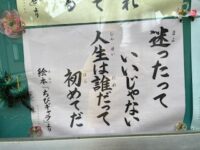 迷ったって
いいじゃない
人生は誰だって
初めてだ
絵本「ちびギャラ」より